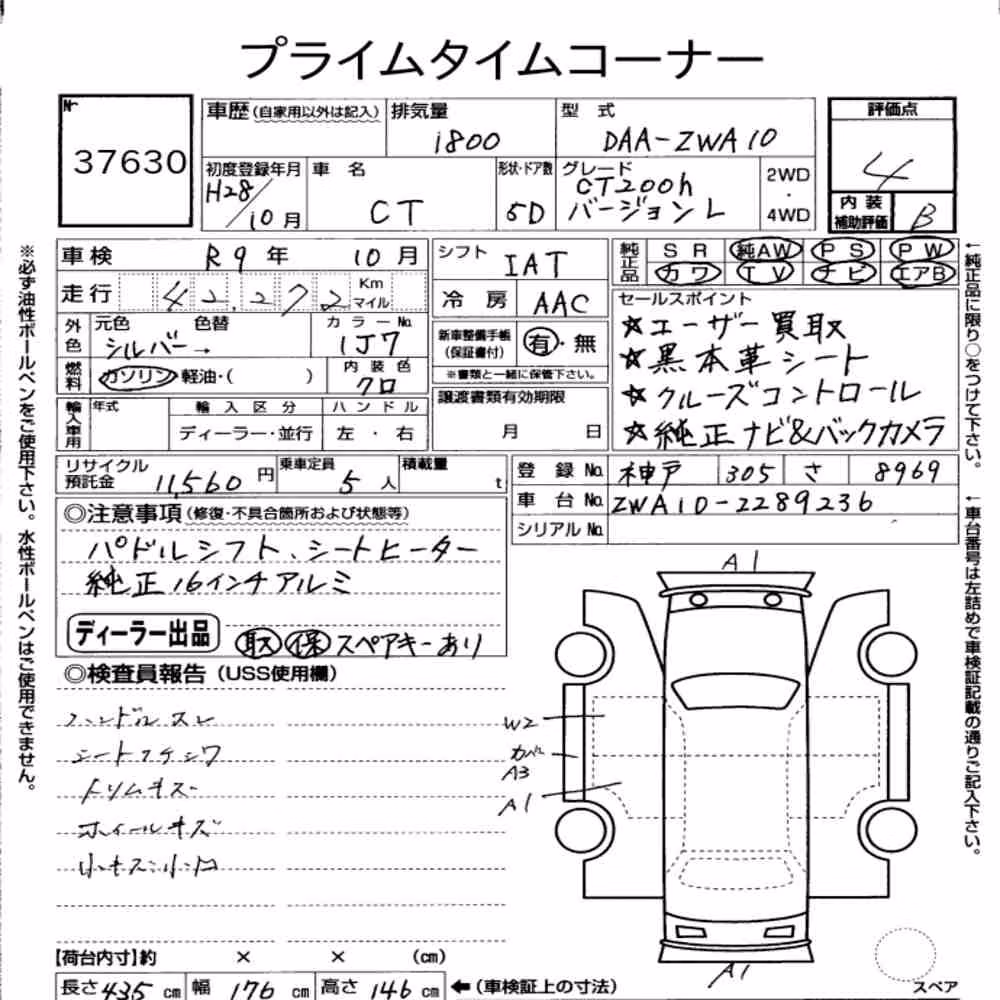 プライムタイムコーナー
Nr 37630
車歴(自家用以外は記入) 排気量 1800 型式 DAA-ZWA10 評価点 4
初度登録年月 H28/10月 車名 CT 形状・ドア数 5D グレード CT200h バージョンL 2WD・4WD 内装補助評価 B
車検 R9年 10月 シフト IAT 純正品 SR 純AW PS PW
カワ TV ナビ エアB
走行 42,272 Km マイル 冷房 AAC
外色 元色 シルバー→ 色替 カラーNo. 1J7
新車整備手帳(保証書付) 有・無
※書類と一緒に保管下さい。
燃料 ガソリン・軽油・( ) 内装色 クロ
輸入車用 年式 輸入区分 ディーラー・並行 ハンドル 左・右
譲渡書類有効期限 月 日
セールスポイント
☆ユーザー買取
☆黒本革シート
☆クルーズコントロール
☆純正ナビ&バックカメラ
リサイクル預託金 11,560円 乗車定員 5人 積載量 t
登録No. 神戸 305 さ 8969
車台No. ZWA10-2289236
シリアルNo.
◎注意事項(修復・不具合箇所および状態等)
パドルシフト、シートヒーター
純正16インチアルミ
ディーラー出品 取 保 スペアキーあり
◎検査員報告(USS使用欄)
ハンドルスレ
シートスレシワ
トリムキズ
ホイールキズ
A1
W2
カバー
A3
A1
A1
スペア
【荷台内寸】約 × × (cm)
長さ435cm 幅176cm 高さ146cm ←(車検証上の寸法)
※必ず油性ボールペンをご使用下さい。水性ボールペンはご使用できません。
←純正品に限り○をつけて下さい。
←車台番号は左詰めで車検証記載の通りご記入下さい。